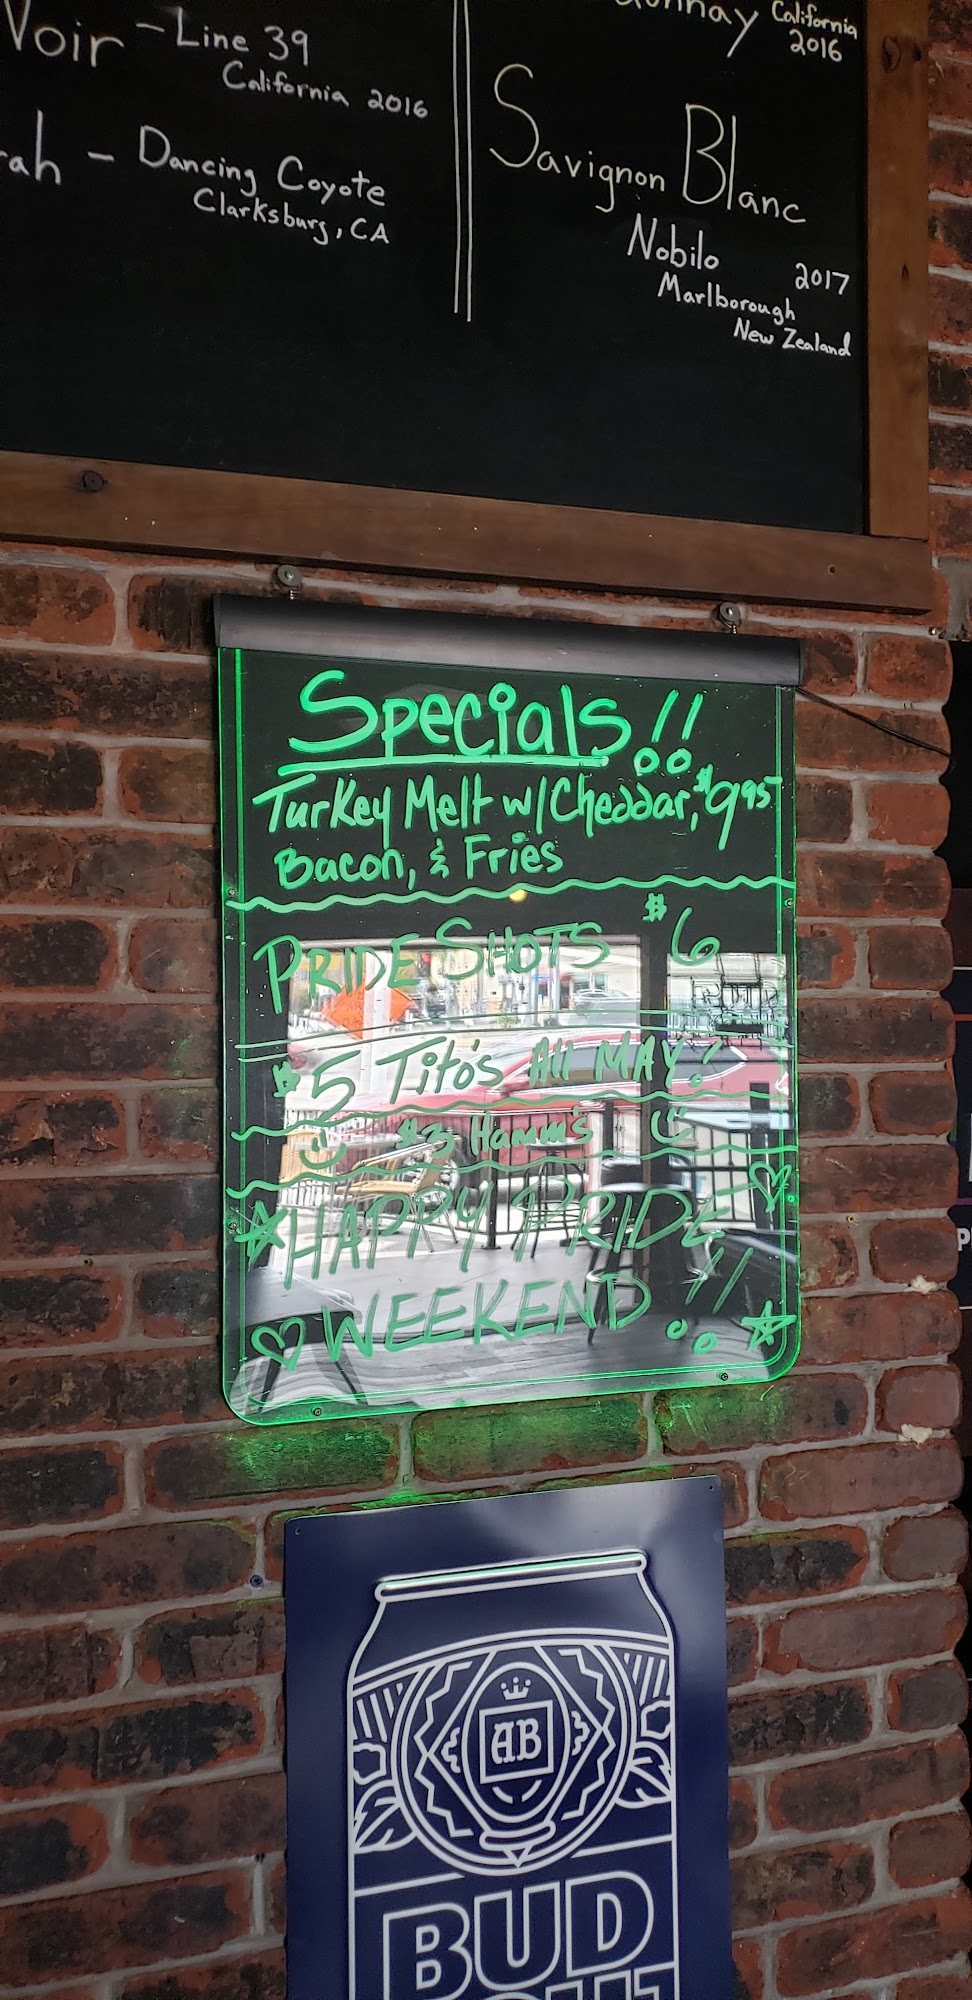 Noir - Line 39
California 2016
rah - Dancing Coyote
Clarksburg, CA
California
2016
Savignon Blanc
Nobilo 2017
Marlborough
New Zealand
Specials!!
Turkey Melt w/ Cheddar, $9.95
Bacon, & Fries
PRIDE SHOTS $6
$5 Tito's All MAY!
$3 Hamm's
HAPPY PRIDE
WEEKEND!!
AB
BUD